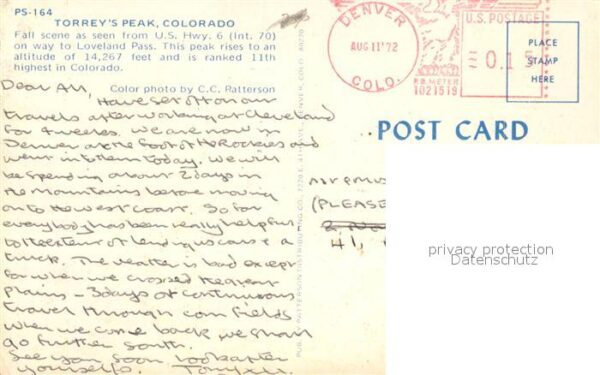 PS-164
TORREY'S PEAK, COLORADO
Fall scene as seen from U.S. Hwy. 6 (Int. 70)
on way to Loveland Pass. This peak rises to an
altitude of 14,267 feet and is ranked 11th
highest in Colorado.
Color photo by C.C. Patterson
DENVER
AUG 11 '72
COLO.
U.S. POSTAGE
0.15
P.B. METER
1021519
PLACE
STAMP
HERE
POST CARD
Dear All,
Have set off on our
travels after working at Cleveland
for 4 weeks. We are now in
Denver at the foot of the Rockies and
went into them today. We will
be spending about 2 days in
the mountains before moving
onto the west coast. So far
everybody has been really helpful
to the extent of lending us cars & a
truck. The weather is bad except
for when we crossed the great
plains - 3 days of continuous
travel through corn fields
when we come back we shall
go further south.
See you soon look after
yourselves. Tony
PUB. BY PATTERSON DISTRIBUTING CO., DENVER, COLO. 80220
(PLEASE
41,
privacy protection
Datenschutz